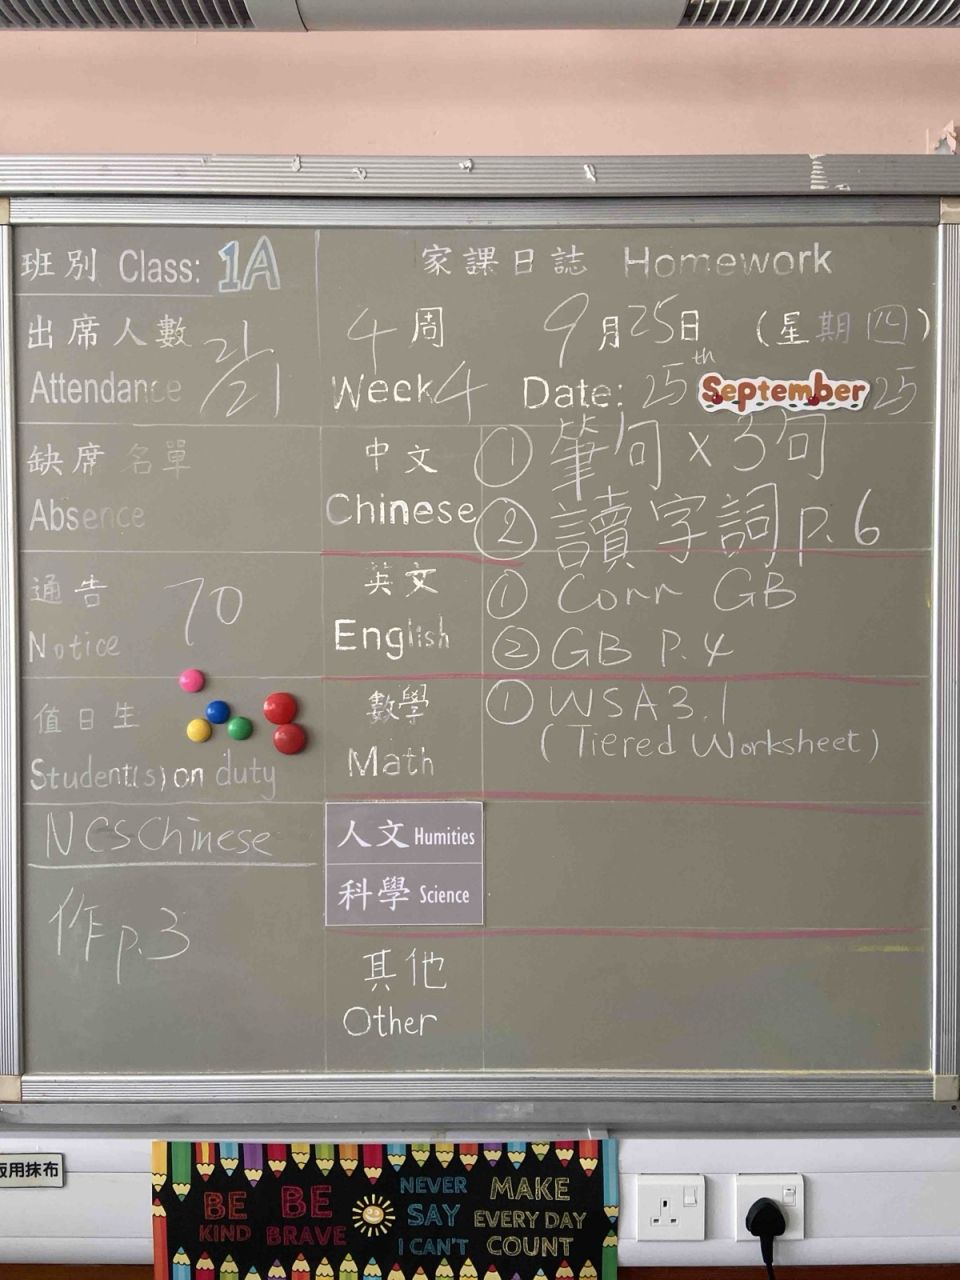 班別 Class: 1A
家課日誌 Homework
出席人數 21/21
Attendance
4周 9月25日 (星期四)
Week 4 Date: 25th September 25
缺席名單
Absence
中文
Chinese
① 筆句 x 3句
② 讀字詞 p.6
通告 70
Notice
英文
English
① Corr GB
② GB P.4
值日生
Student(s) on duty
數學
Math
① WSA3.1
(Tiered Worksheet)
NCS Chinese
作 p.3
人文 Humities
科學 Science
其他
Other
板用抹布
BE KIND
BE BRAVE
NEVER SAY I CAN'T
MAKE EVERY DAY COUNT